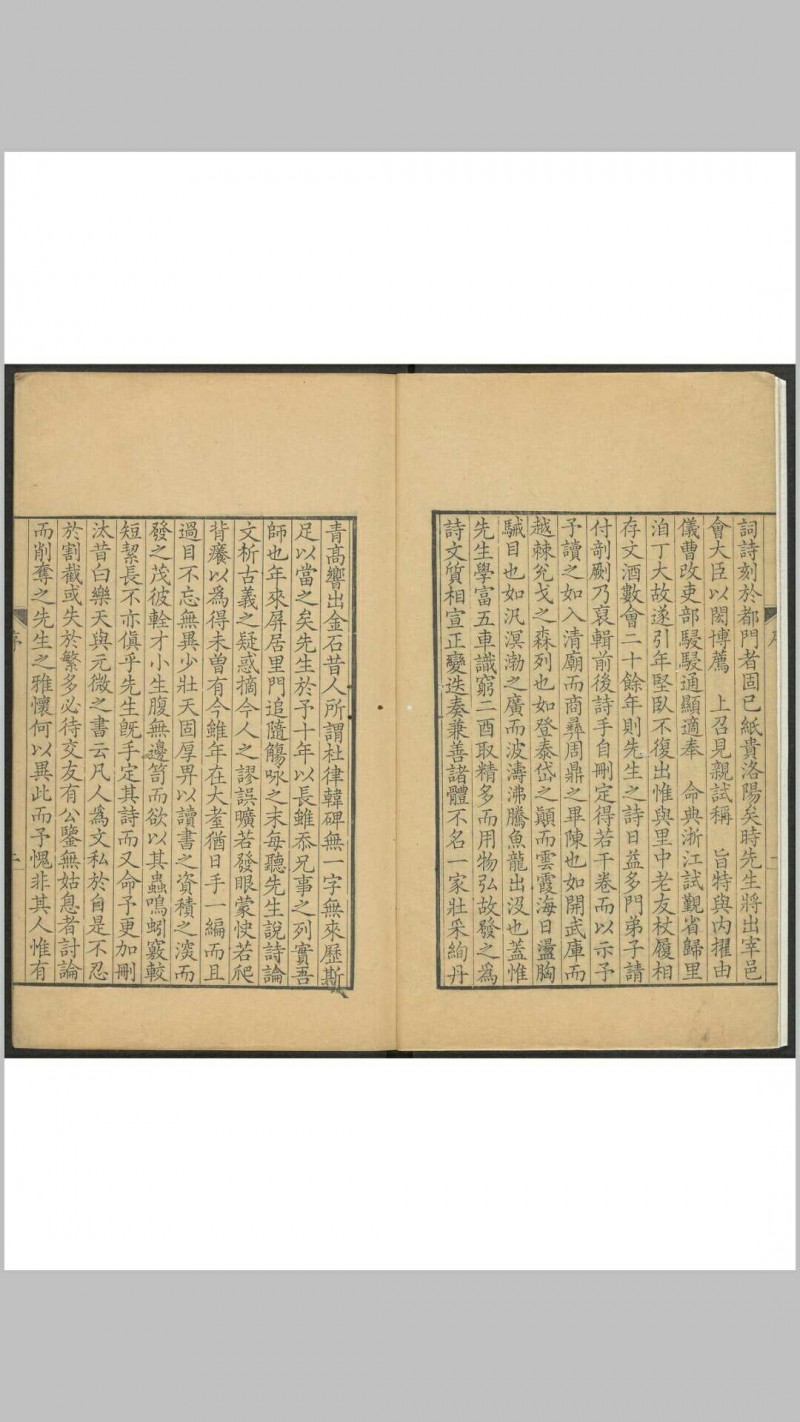 詞詩刻於都門者固已紙貴洛陽矣時先生將出宰邑
會大臣以閎博薦　上召見親試稱　旨特與内擢由
儀曹改吏部駸駸通顯適奉　命典浙江試覲省歸里
洎丁大故遂引年堅臥不復出惟與里中老友杖履相
存文酒數會二十餘年則先生之詩日益多門弟子請
付剞劂乃裒輯前後詩手自刪定得若干卷而以示予
予讀之如入清廟而商彝周鼎之畢陳也如開武庫而
越棘兊戈之森列也如登泰岱之顚而雲霞海日盪胸
駴目也如汎溟渤之廣而波濤沸騰魚龍出没也葢惟
先生學富五車識窮二酉取精多而用物弘故發之爲
詩文質相宣正變迭奏兼善諸體不名一家壯采絢丹
青高響出金石昔人所謂杜律韓碑無一字無來歷斯
足以當之矣先生於予十年以長雖忝兄事之列實吾
師也年來屏居里門追隨觴咏之末每聽先生說詩論
文析古義之疑惑摘今人之謬誤曠若發眼蒙快若爬
背癢以爲得未曽有今雖年在大耋猶日手一編而且
過目不忘無異少壯天固厚畀以讀書之資積之深而
發之茂彼輇才小生腹無邊笥而欲以其蟲鳴蚓竅較
短絜長不亦傎乎先生旣手定其詩而又命予更加刪
汰昔白樂天與元微之書云凡人爲文私於自是不忍
於割截或失於繁多必待交友有公鑒無姑息者討論
而削奪之先生之雅懷何以異此而予愧非其人惟有
序
二